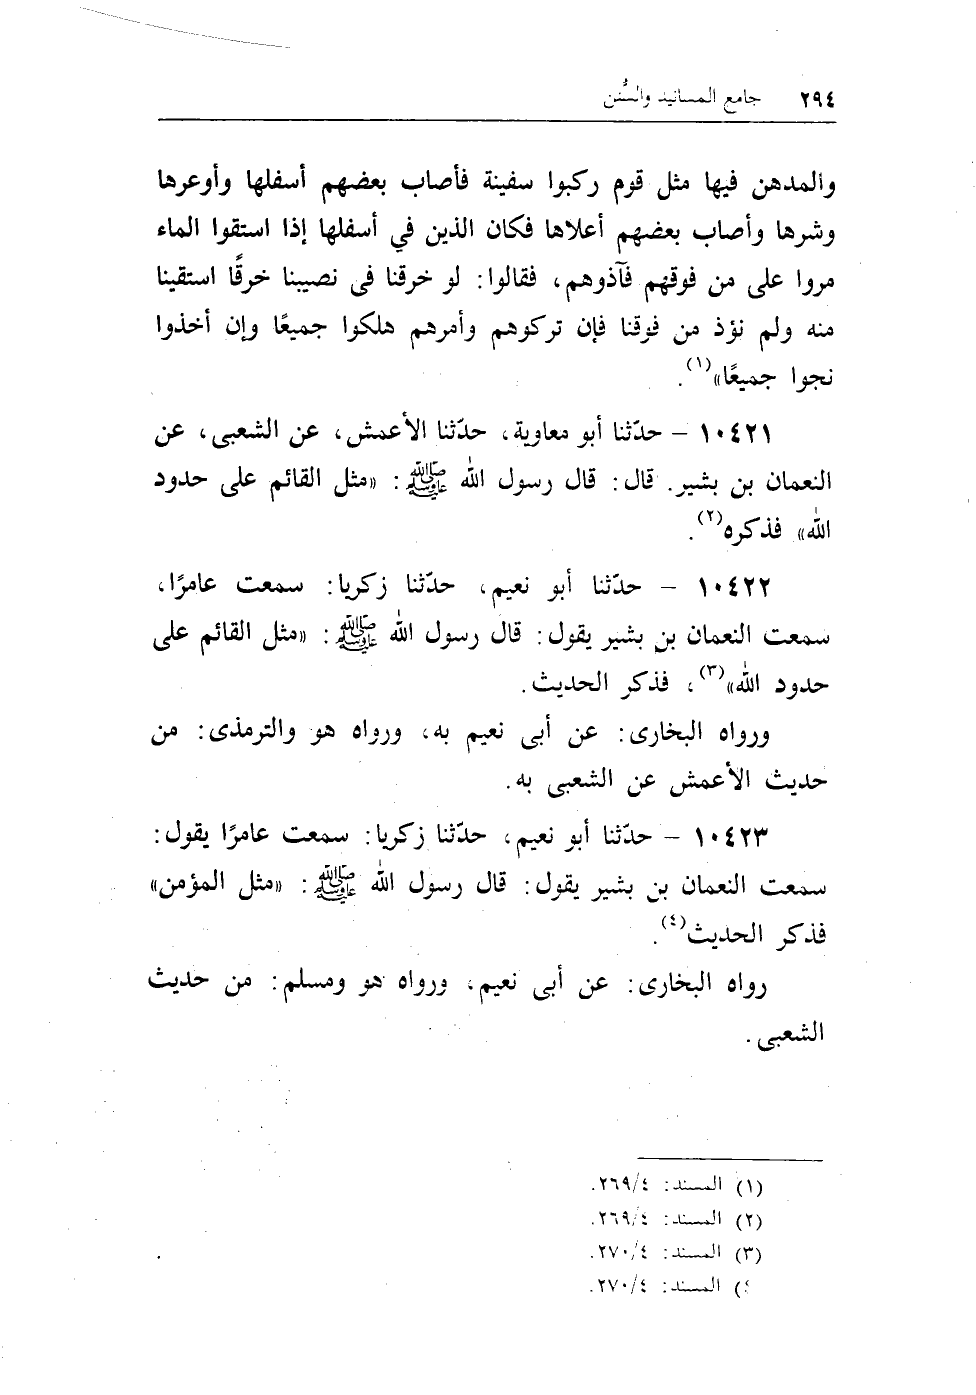 ٢٩٤ جامع المسانيد والسُّنن
والمدهن فيها مثل قوم ركبوا سفينة فأصاب بعضهم أسفلها وأوعرها
وشرها وأصاب بعضهم أعلاها فكان الذين في أسفلها إذا استقوا الماء
مروا على من فوقهم فآذوهم، فقالوا: لو خرقنا فى نصيبنا خرقًا استقينا
منه ولم نؤذ من فوقنا فإن تركوهم وأمرهم هلكوا جميعًا وإن أخذوا
نجوا جميعًا»(١).
١٠٤٢١ – حدّثنا أبو معاوية، حدّثنا الأعمش، عن الشعبى، عن
النعمان بن بشير. قال: قال رسول الله ﷺ: «مثل القائم على حدود
الله» فذكره(٢).
١٠٤٢٢ – حدّثنا أبو نعيم، حدّثنا زكريا: سمعت عامرًا،
سمعت النعمان بن بشير يقول: قال رسول الله ﷺ: «مثل القائم على
حدود الله»(٣)، فذكر الحديث.
ورواه البخارى: عن أبى نعيم به، ورواه هو والترمذى: من
حديث الأعمش عن الشعبى به.
١٠٤٢٣ – حدّثنا أبو نعيم، حدّثنا زكريا: سمعت عامرًا يقول:
سمعت النعمان بن بشير يقول: قال رسول الله ﷺ: «مثل المؤمن»
فذكر الحديث(٤).
رواه البخارى: عن أبى نعيم، ورواه هو ومسلم: من حديث
الشعبى.
(١) المسند: ٢٦٩/٤.
(٢) المسند: ٢٦٩/٤.
(٣) المسند: ٢٧٠/٤.
٤) المسند: ٢٧٠/٤.